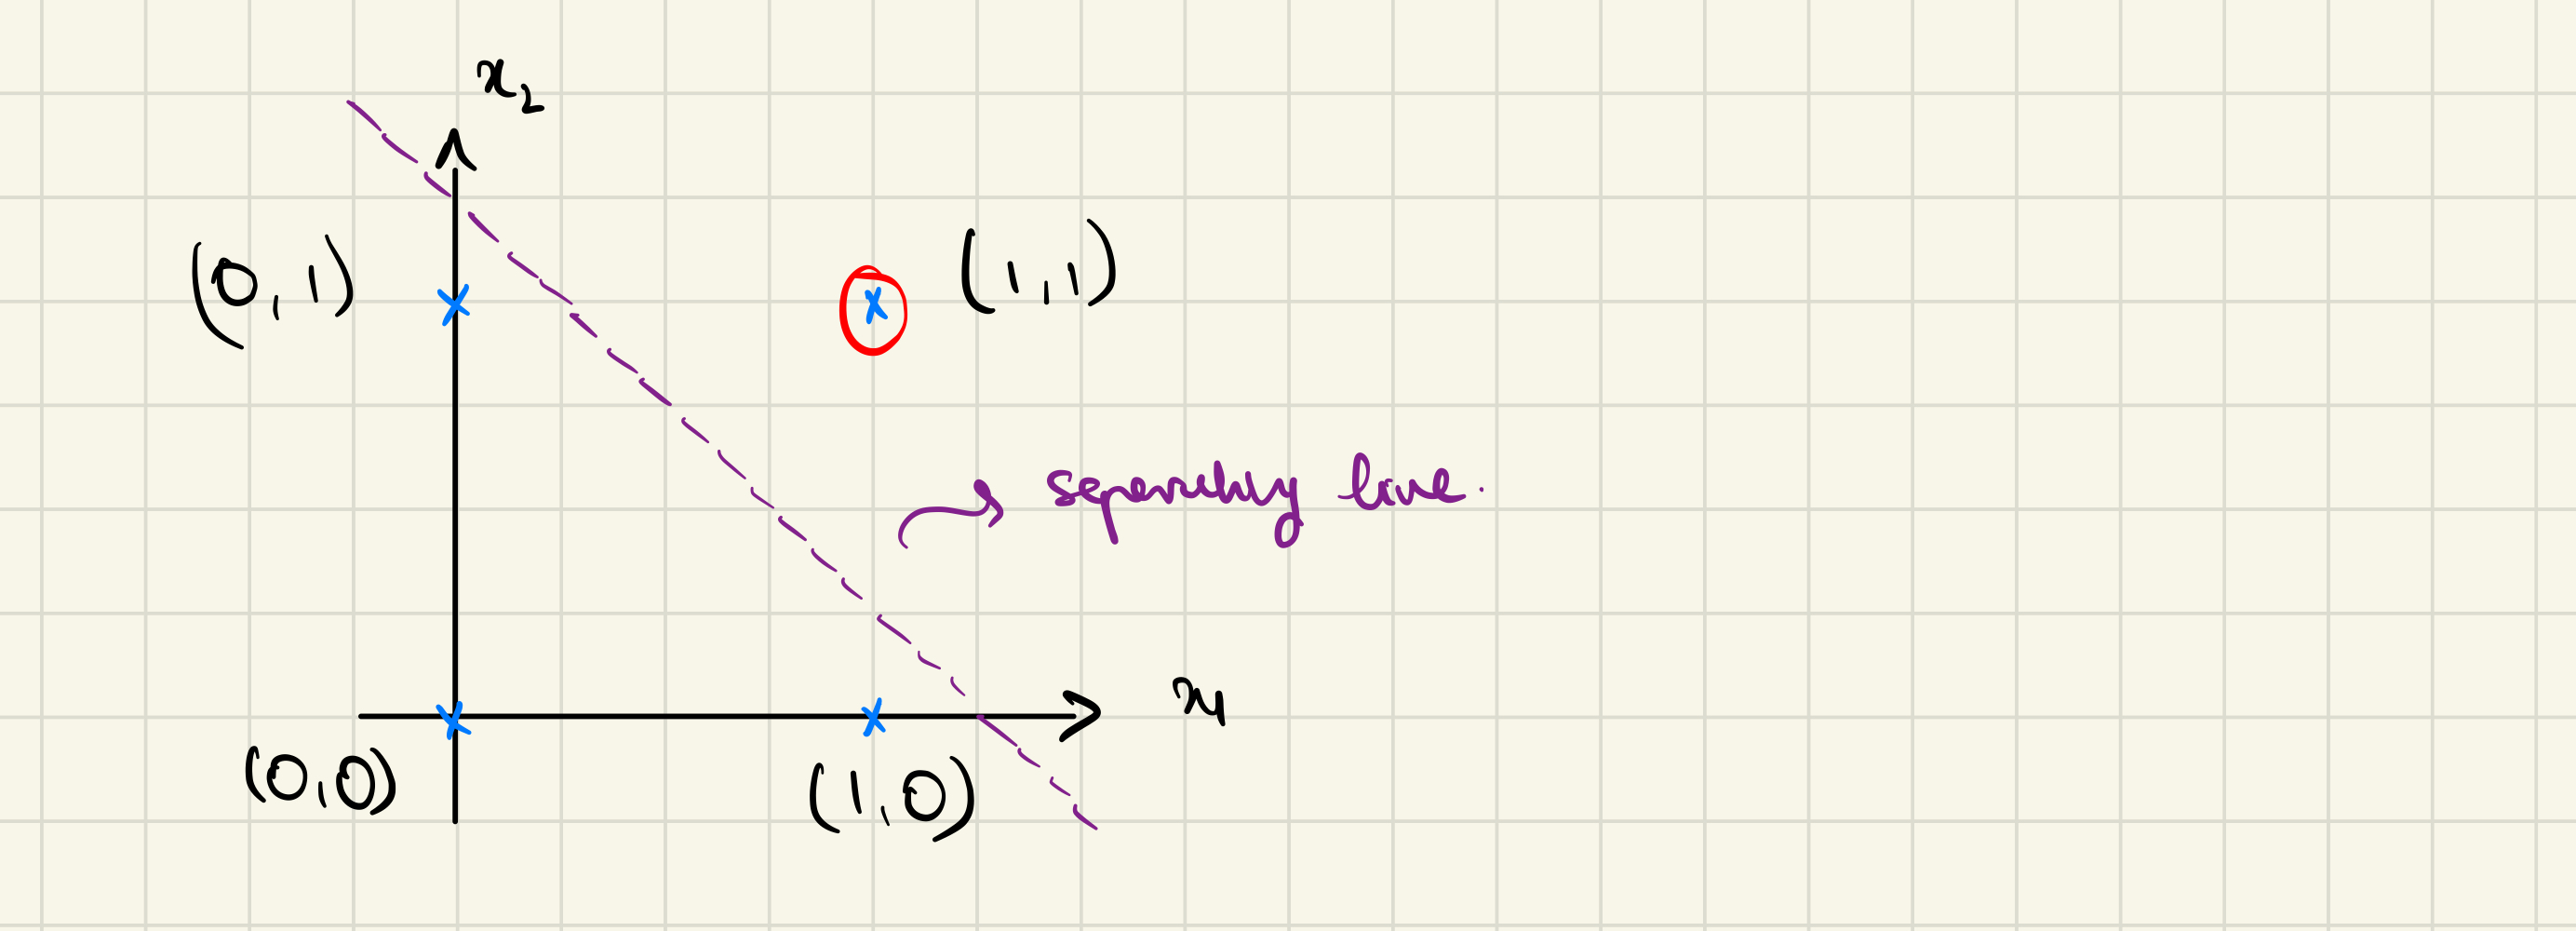 x₂
(0,1)
(1,1)
separating line.
x₁
(0,0)
(1,0)